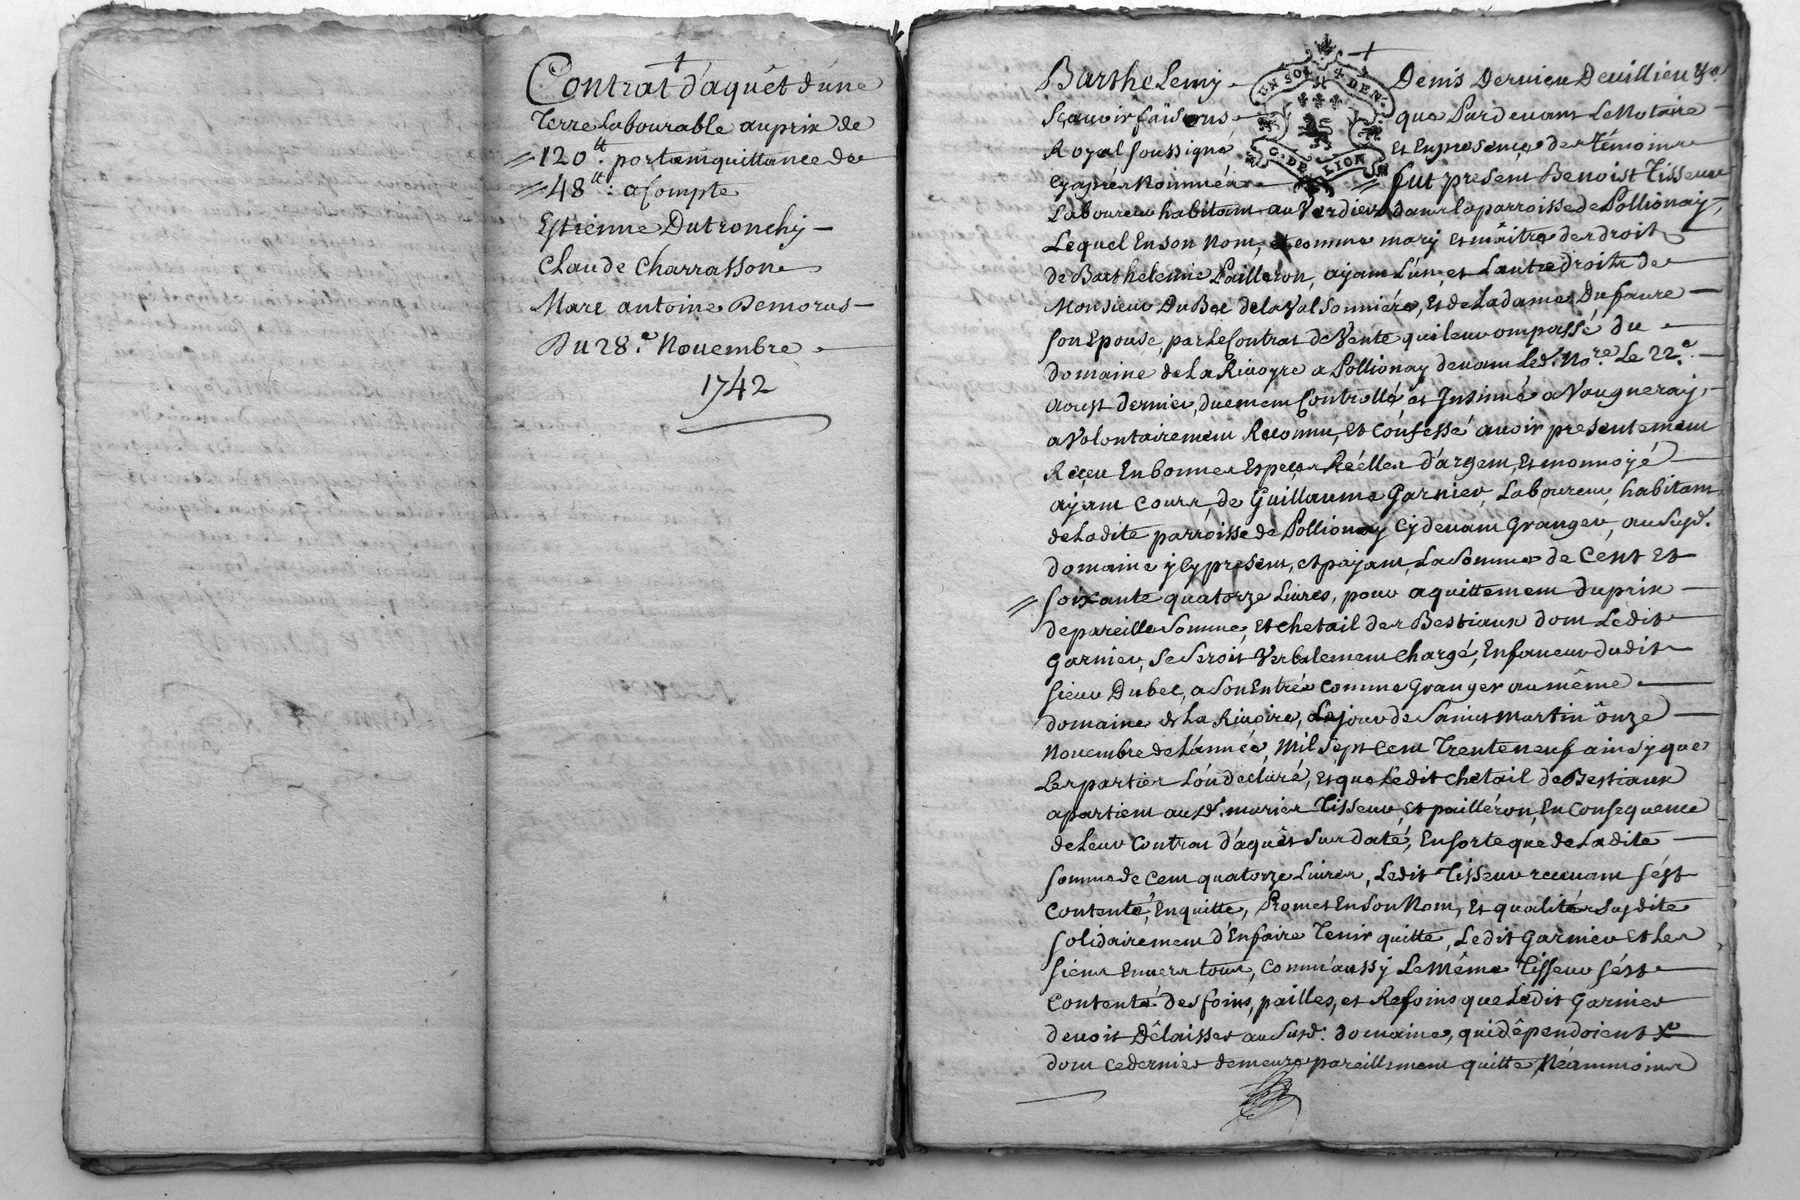 Contrat d'aquêt d'une
Terre Labourable au prix de
120 ₶. portant quittance de
48 ₶: a Compte
Estienne Dutronchy
Claude Charrasson
Marc antoine Demorus
Du 28.e Novembre
1742
Barthelemy Denis Dervieu Devillieu
Sçavoir faisons que Pardevant Le Notaire
Royal soussigné et En presence des témoins
Cy après Nommés fut present Benoist Tisseur
Laboureur habitant au Verdier dans la parroisse de Pollionay,
Lequel En son Nom, et comme mary et maitre des droits
de Barthelemie Pailleron, ayant L'un et L'autre droits de
Monsieur Du Bec de la Valsonniére, et de La dame Dufaure
son Epouse, par Le Contrat de Vente qui leur ont passé du
domaine de La Rivoyre a Pollionay devant Led. No.re Le 22.e
aoust dernier, duement Controllé et Insinué a Vaugneray,
a Volontairement Reconnu, et Confessé avoir presentement
Reçeu En bonnes Especes Réelles d'argent, et monnoyé
ayant cours, de Guillaume Garnier Laboureur habitant
de Ladite parroisse de Pollionay Cy devant Granger, au susd.
domaine y Cy present, et payant, La somme de Cent et
soixante quatorze Livres, pour aquittement du prix
de pareille somme, et Chetail des Bestiaux dont Ledit
Garnier, se seroit Verbalement Chargé, En faveur dudit
sieur Dubec, a son Entrée comme Granger au même
domaine de La Rivoire, Le jour de Saint martin ônze
Novembre de L'année, Mil sept Cent Trente neuf ainsy que
Les parties L'on déclaré, et que Ledit Chetail de Bestiaux
apartient aud. mariés Tisseur, et pailléron, En Consequence
de Leur Contrat d'aquêt sus daté, En sorte que de Ladite
somme de Cent quatorze Livres, Ledit Tisseur recevant s'est
Contenté, En quitte, Promet En son Nom, et qualités susdite
solidairement d'En faire Tenir quitte, Ledit Garnier et Les
siens Envers tous, Comm'aussy Le Même Tisseur s'est
Contenté des foins, pailles, et Refoins que Ledit Garnier
devoit Délaisser au susd. domaine, qui dêpendoient
dont Ce dernier demeure pareillement quitte, Néammoins
UN SOL 4 DEN.
G. DE LION